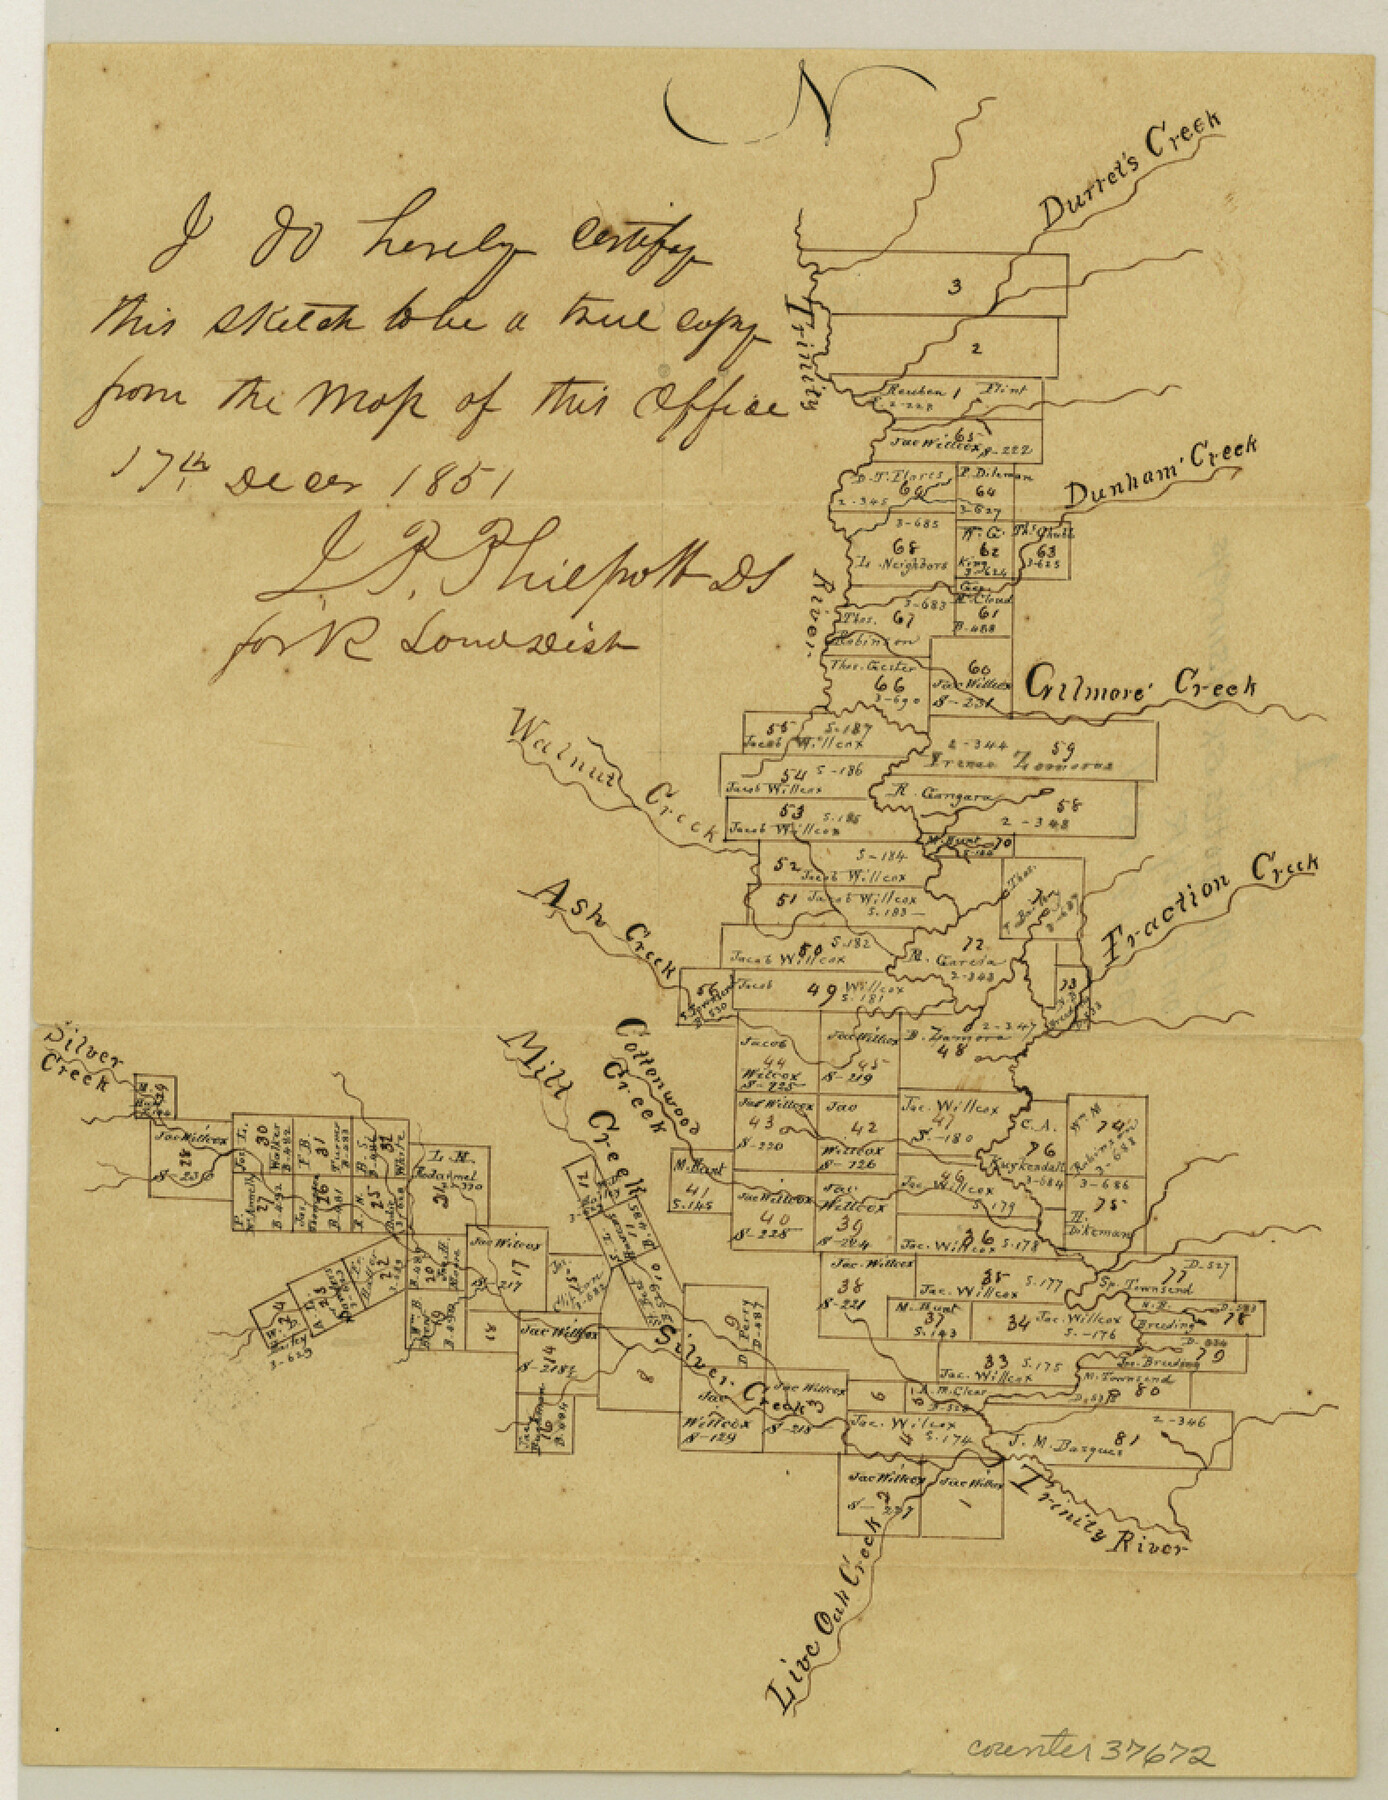 N
I do hereby certify
this sketch to be a true copy
from the Map of this Office
17th Decer 1851
J. P. Philpott DS
for R
Durret's Creek
3
Trinity
2
Reuben 1 Flint
2-229
65
Jac Willcox S-222
D. T. Flores
2-345
P. Dikeman
64
3-627
Dunham' Creek
3-685
68
L. Neighbors
W. G.
62
King
3-624
Ths. Chubb
63
3-625
River
3-683
Thos. 67
Robinson
Geo.
McCloud
61
B-488
Thos. Gester
66
3-690
60
Jac Willcox
S-231
Gilmore' Creek
55 S-187
Jacob Willcox
2-344 59
54 S-186
Jacob Willcox
R. Gongara
58
2-348
53 S-185
Jacob Willcox
M. Hunt 70
Walnut Creek
52 S-184
Jacob Willcox
51 Jacob Willcox
S-183
Thos.
3-687
Fraction Creek
Ash Creek
50 S-182
Jacob Willcox
72
M. Garcia
2-343
56
Townsend
Jacob 49 Willcox
S-181
73
Breeding
Silver
Creek
Mill Creek
Cottonwood
Creek
Jacob
44
Wilcox
S-725
Jac Willcox
45
S-219
B. Zamora 2-347
48
Jac Willcox
43
S-220
Jac
42
Willcox
S-726
Jac. Willcox
47
S-180
C. A.
76
Kuykendall
3-684
Wm. M
74
Robinson
3-688
M. Hunt
41
S-145
Jac Willcox
40
S-228
Jac.
Willcox
39
S-224
46
Jac. Willcox
S-179
3-686
75
H.
Dikeman
36 S-178
Jac. Willcox
M.
Hunt
29
Jac Willcox
28
S-236
Jos. L.
30
Walker
B-482
F. B.
31
Turner
B-483
B. S.
32
White
L. M.
Rodarmel
P.
27
B-492
Jas.
26
Thompson
B-481
25
12
11
10
Jac Wilcox
17
S-217
15
Clifton
3-682
Jac. Willcox
38
S-221
35 S-177
Jac. Willcox
77 D-527
Sp. Townsend
M. Hunt
37
S-143
34 Jac. Willcox
S-176
N. R.
Breeding 78
33 S-175
Jac. Willcox
79
Jno. Breeding
M. Townsend
80
24
W. D.
Bailey
3-629
23
22
20
19
B-490
18
Jac Willcox
14
S-218½
Silver Creek
8
9
D. Perry
D-487
Jac
Willcox
S-129
Jac Willcox
3
S-218
6
5
A. McClear
D-528
Jac. Wilcox
4
S-174
2-346
J. M. Basques 81
16
B-484
Jac Willcox
2
S-227
Jac Willcox
1
Trinity River
Live Oak Creek
counter 37672